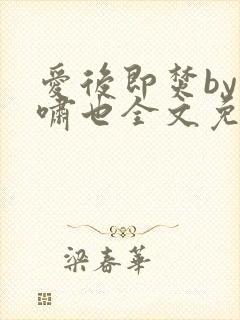 愛後即焚by
嘯也全文免
梁春華